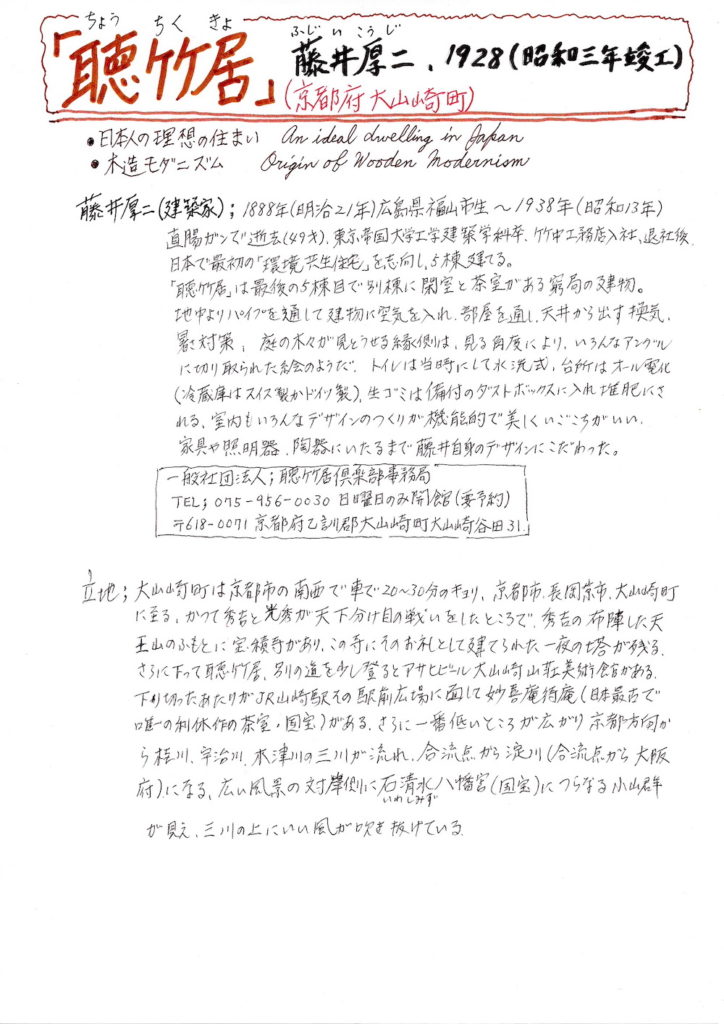 ちょう ちく きょ
「聴竹居」
ふじ い こう じ
藤井厚二、1928(昭和三年竣工)
(京都府大山崎町)
●日本人の理想の住まい An ideal dwelling in Japan
●木造モダニズム Origin of Wooden Modernism
藤井厚二(建築家);1888年(明治21年)広島県福山市生〜1938年(昭和13年)
直腸ガンで逝去(49才)、東京帝国大学工学建築学科卒、竹中工務店入社、退社後、
日本で最初の「環境共生住宅」を志向し、5棟建てる。
「聴竹居」は最後の5棟目で別棟に閑室と茶室がある窮局の建物。
地中よりパイプを通して建物に空気を入れ、部屋を通し、天井から出す換気、
暑さ対策、庭の木々が見とうせる縁側は、見る角度により、いろんなアングル
に切り取られた絵のようだ。トイレは当時にして水洗式、台所はオール電化
(冷蔵庫はスイス製かドイツ製)、生ゴミは備付のダストボックスに入れ堆肥にさ
れる、室内もいろんなデザインのつくりが機能的で美しくいごこちがいい、
家具や照明器、陶器にいたるまで藤井自身のデザインにこだわった。
一般社団法人;聴竹居倶楽部事務局
TEL;075-956-0030 日曜日のみ開館(要予約)
〒618-0071 京都府乙訓郡大山崎町大山崎谷田31
立地;大山崎町は京都市の南西で車で20〜30分のキョリ、京都市、長岡京市、大山崎町
に至る、かつて秀吉と光秀が天下分け目の戦いをしたところで、秀吉の布陣した天
王山のふもとに宝積寺があり、この寺にそのお礼として建てられた一夜の塔が残る、
さらに下って聴竹居、別の道を少し登るとアサヒビール大山崎山荘美術館がある、
下り切ったあたりがJR山崎駅その駅前広場に面して妙喜庵待庵(日本最古で
唯一の利休作の茶室・国宝)がある、さらに一番低いところが広がり京都方向か
ら桂川、宇治川、木津川の三川が流れ、合流点から淀川(合流点から大阪
府)になる、広い風景の対岸側に石清水八幡宮(国宝)につらなる小山群
いわしみず
が見え、三川の上にいい風が吹き抜けている。